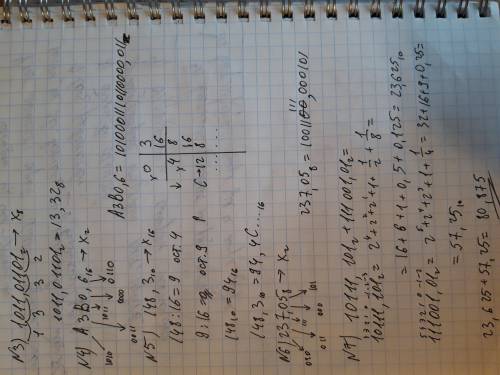 N3) 1011,01101₂ → X₈
1 3 3 2
1011,01101₂ = 13,32₈
N4) A3B0,6₁₆ → X₂
1010 0011 1011 0000 0110
A3B0,6 = 1010001110110000,011₂
N5) 148,3₁₀ → X₁₆
148:16=9 ост.4
9:16 ост.9
148₁₀ = 94₁₆
148,3₁₀ = 94,4C...₁₆
x 0 3
16
x 4 8
16
C→12 8
N6) 237,05₈ → X₂
010 011 111 000 101
237,05₈ = 10011111,000101
N7) 10111,101₂ + 111001,01₂
10111,101₂ = 2⁴+2²+2¹+1+1/2+1/8=
=16+4+2+1+0,5+0,125=23,625₁₀
111001,01₂ = 2⁵+2⁴+2³+1+1/4=32+16+8+1+0,25=
=57,25₁₀
23,625+57,25=80,875